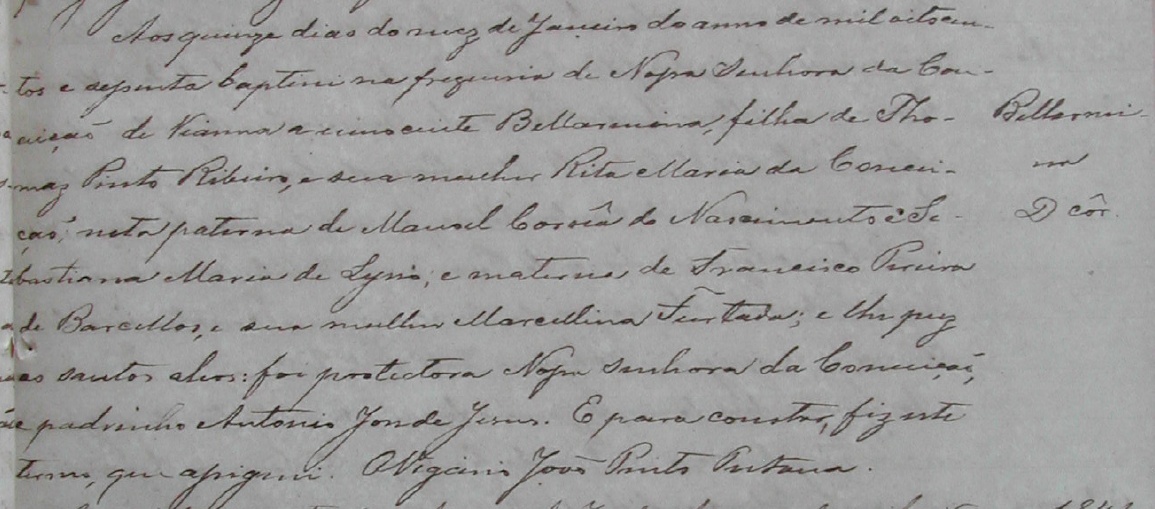 Aos quinze dias do mez de Janeiro do anno de mil oitocen-
tos e sessenta baptizei na freguezia de Nossa Senhora da Con-
ceição de Vianna a innocente Bellarmina, filha de Tho-
maz Pinto Ribeiro, e sua mulher Rita Maria da Concei-
ção; neta paterna de Manoel Corrêa do Nascimento e Se-
bastiana Maria de Lyrio; e materna de Francisco Pereira
de Barcellos, e sua mulher Marcellina Furtada; e lhe puz
os santos oleos: foi protectora Nossa Senhora da Conceição,
e padrinho Antonio José de Jesus. E para constar, fiz este
termo, que assignei. O Vigario João Pinto Pestana.
Bellarmi-
na
D côr.